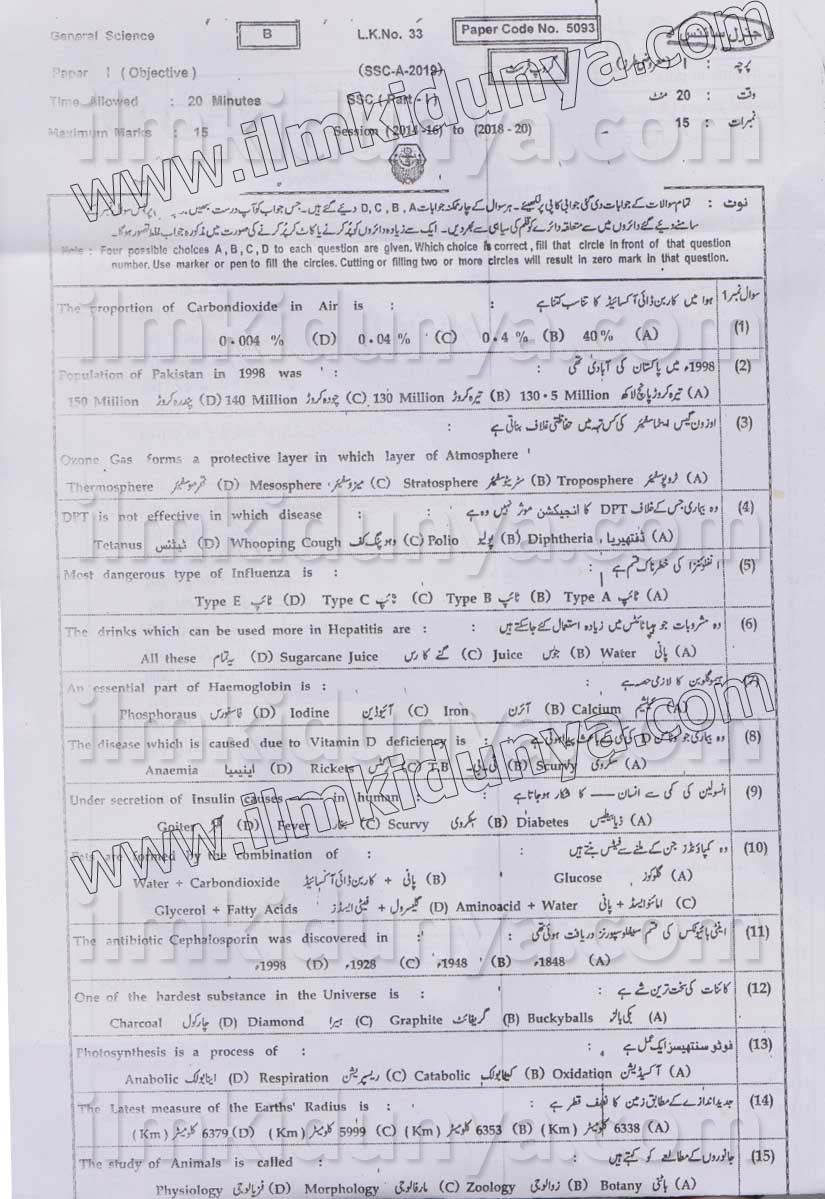 General Science B L.K.No. 33 Paper Code No. 5093 جنرل سائنس
Paper I (Objective) (SSC-A-2019) پرچہ : I
Time Allowed : 20 Minutes SSC (Part - I) وقت : 20 منٹ
Maximum Marks : 15 Session (2014 -16) to (2018 - 20) نمبرات : 15
نوٹ : تمام سوالات کے جوابات دی گئی جوابی کاپی پر لکھیئے۔ ہر سوال کے چار ممکنہ جوابات D , C , B , A دیئے گئے ہیں۔ جس جواب کو آپ درست سمجھیں،
سامنے دیئے گئے دائروں میں سے متعلقہ دائرے کو قلم کی سیاہی سے بھر دیں۔ ایک سے زیادہ دائروں کو پُر کرنے یا کاٹ کر پُر کرنے کی صورت میں مذکورہ جواب غلط تصور ہوگا۔
Note : Four possible choices A, B, C, D to each question are given. Which choice is correct, fill that circle in front of that question
number. Use marker or pen to fill the circles. Cutting or filling two or more circles will result in zero mark in that question.
سوال نمبر 1
The proportion of Carbondioxide in Air is : ہوا میں کاربن ڈائی آکسائیڈ کا تناسب کتنا ہے : (1)
0.004 % (D) 0.04 % (C) 0.4 % (B) 40% (A)
Population of Pakistan in 1998 was : 1998ء میں پاکستان کی آبادی تھی (2)
150 Million پندرہ کروڑ (D) 140 Million چودہ کروڑ (C) 130 Million تیرہ کروڑ (B) 130.5 Million تیرہ کروڑ پانچ لاکھ (A)
اوزون گیس ایٹماسفیئر کی کس تہہ میں حفاظتی غلاف بناتی ہے (3)
Ozone Gas forms a protective layer in which layer of Atmosphere
Thermosphere تھرموسفیئر (D) Mesosphere میزوسفیئر (C) Stratosphere سٹریٹوسفیئر (B) Troposphere ٹروپوسفیئر (A)
DPT is not effective in which disease : وہ بیماری جس کے خلاف DPT کا انجیکشن موثر نہیں وہ ہے : (4)
Tetanus ٹیٹنس (D) Whooping Cough وہوپنگ کف (C) Polio پولیو (B) Diphtheria ڈفتھیریا (A)
Most dangerous type of Influenza is : انفلوئنزا کی خطرناک قسم ہے : (5)
Type E ٹائپ (D) Type C ٹائپ (C) Type B ٹائپ (B) Type A ٹائپ (A)
The drinks which can be used more in Hepatitis are : وہ مشروبات جو ہیپاٹائٹس میں زیادہ استعمال کئے جاسکتے ہیں : (6)
All these یہ تمام (D) Sugarcane Juice گنے کا رس (C) Juice جوس (B) Water پانی (A)
An essential part of Haemoglobin is : ہیموگلوبن کا لازمی حصہ ہے :
Phosphoraus فاسفورس (D) Iodine آئیوڈین (C) Iron آئرن (B) Calcium کیلشیم (A)
The disease which is caused due to Vitamin D deficiency is : وہ بیماری جو وٹامن D کی کمی کے باعث پیدا ہوتی ہے (8)
Anaemia اینیمیا (D) Rickets رکٹس (C) T.B ٹی۔بی۔ (B) Scurvy سکروی (A)
Under secretion of Insulin causes —— in human : انسولین کی کمی سے انسان —— کا شکار ہوجاتا ہے : (9)
Goiter (D) Fever بخار (C) Scurvy سکروی (B) Diabetes ذیابیطس (A)
Fats are formed by the combination of : وہ کمپاؤنڈز جن کے ملنے سے فیٹس بنتے ہیں : (10)
Water + Carbondioxide پانی + کاربن ڈائی آکسائیڈ (B) Glucose گلوکوز (A)
Glycerol + Fatty Acids گلیسرول + فیٹی ایسڈز (D) Aminoacid + Water امائنو ایسڈ + پانی (C)
The antibiotic Cephalosporin was discovered in : اینٹی بائیوٹکس کی قسم سیفلوسپورنز دریافت ہوئی تھی : (11)
1998ء (D) 1928ء (C) 1948ء (B) 1848ء (A)
One of the hardest substance in the Universe is : کائنات کی سخت ترین شے ہے : (12)
Charcoal چارکول (D) Diamond ہیرا (C) Graphite گریفائٹ (B) Buckyballs بکی بالز (A)
Photosynthesis is a process of : فوٹو سنتھیسز ایک عمل ہے : (13)
Anabolic اینابولک (D) Respiration ریسپریشن (C) Catabolic کیٹابولک (B) Oxidation آکسیڈیشن (A)
The Latest measure of the Earths' Radius is : جدید اندازے کے مطابق زمین کا نصف قطر ہے : (14)
(Km) کلومیٹر 6379 (D) (Km) کلومیٹر 5999 (C) (Km) کلومیٹر 6353 (B) (Km) کلومیٹر 6338 (A)
The study of Animals is called : جانوروں کے مطالعے کو کہتے ہیں : (15)
Physiology فزیالوجی (D) Morphology مارفالوجی (C) Zoology زوالوجی (B) Botany باٹنی (A)
www.ilmkidunya.com
www.ilmkidunya.com
ilmkidunya.com
ilmkidunya.com
ilmkidunya.com
ilmkidunya.com
ilmkidunya.com
ilmkidunya.com
ilmkidunya.com